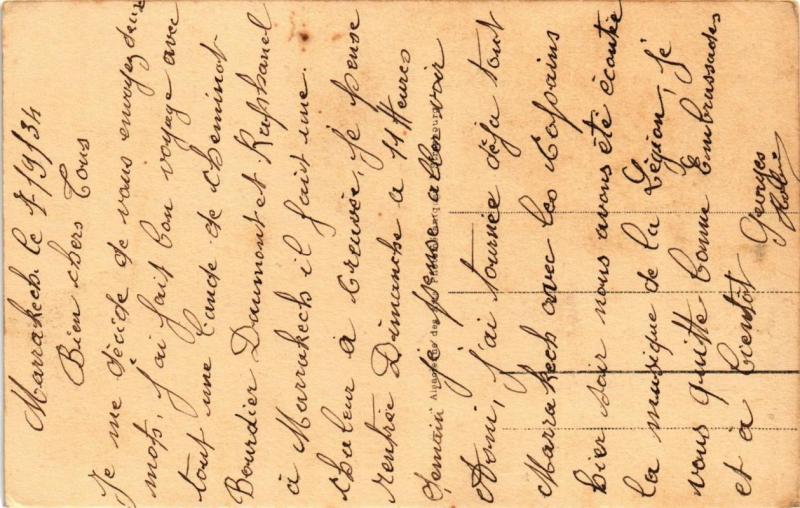 Marrakech le 7/9/34
Bien chers Tous
Je me décide de vous envoyez deux
mots, j'ai fait bon voyage avec
tout une bande de cheminot
Bourdier Daumont et Raphanel
à Marrakech il fait une
chaleur à crevée, je pense
rentrée Dimanche a 11 Heures
demain je pense allez voir
Asni, j'ai tournée déja tout
Marrakech avec les Copains
hier soir nous avons été écoutée
la musique de la Légion, je
vous quitte bonne Embrassades
et à bientôt Georges